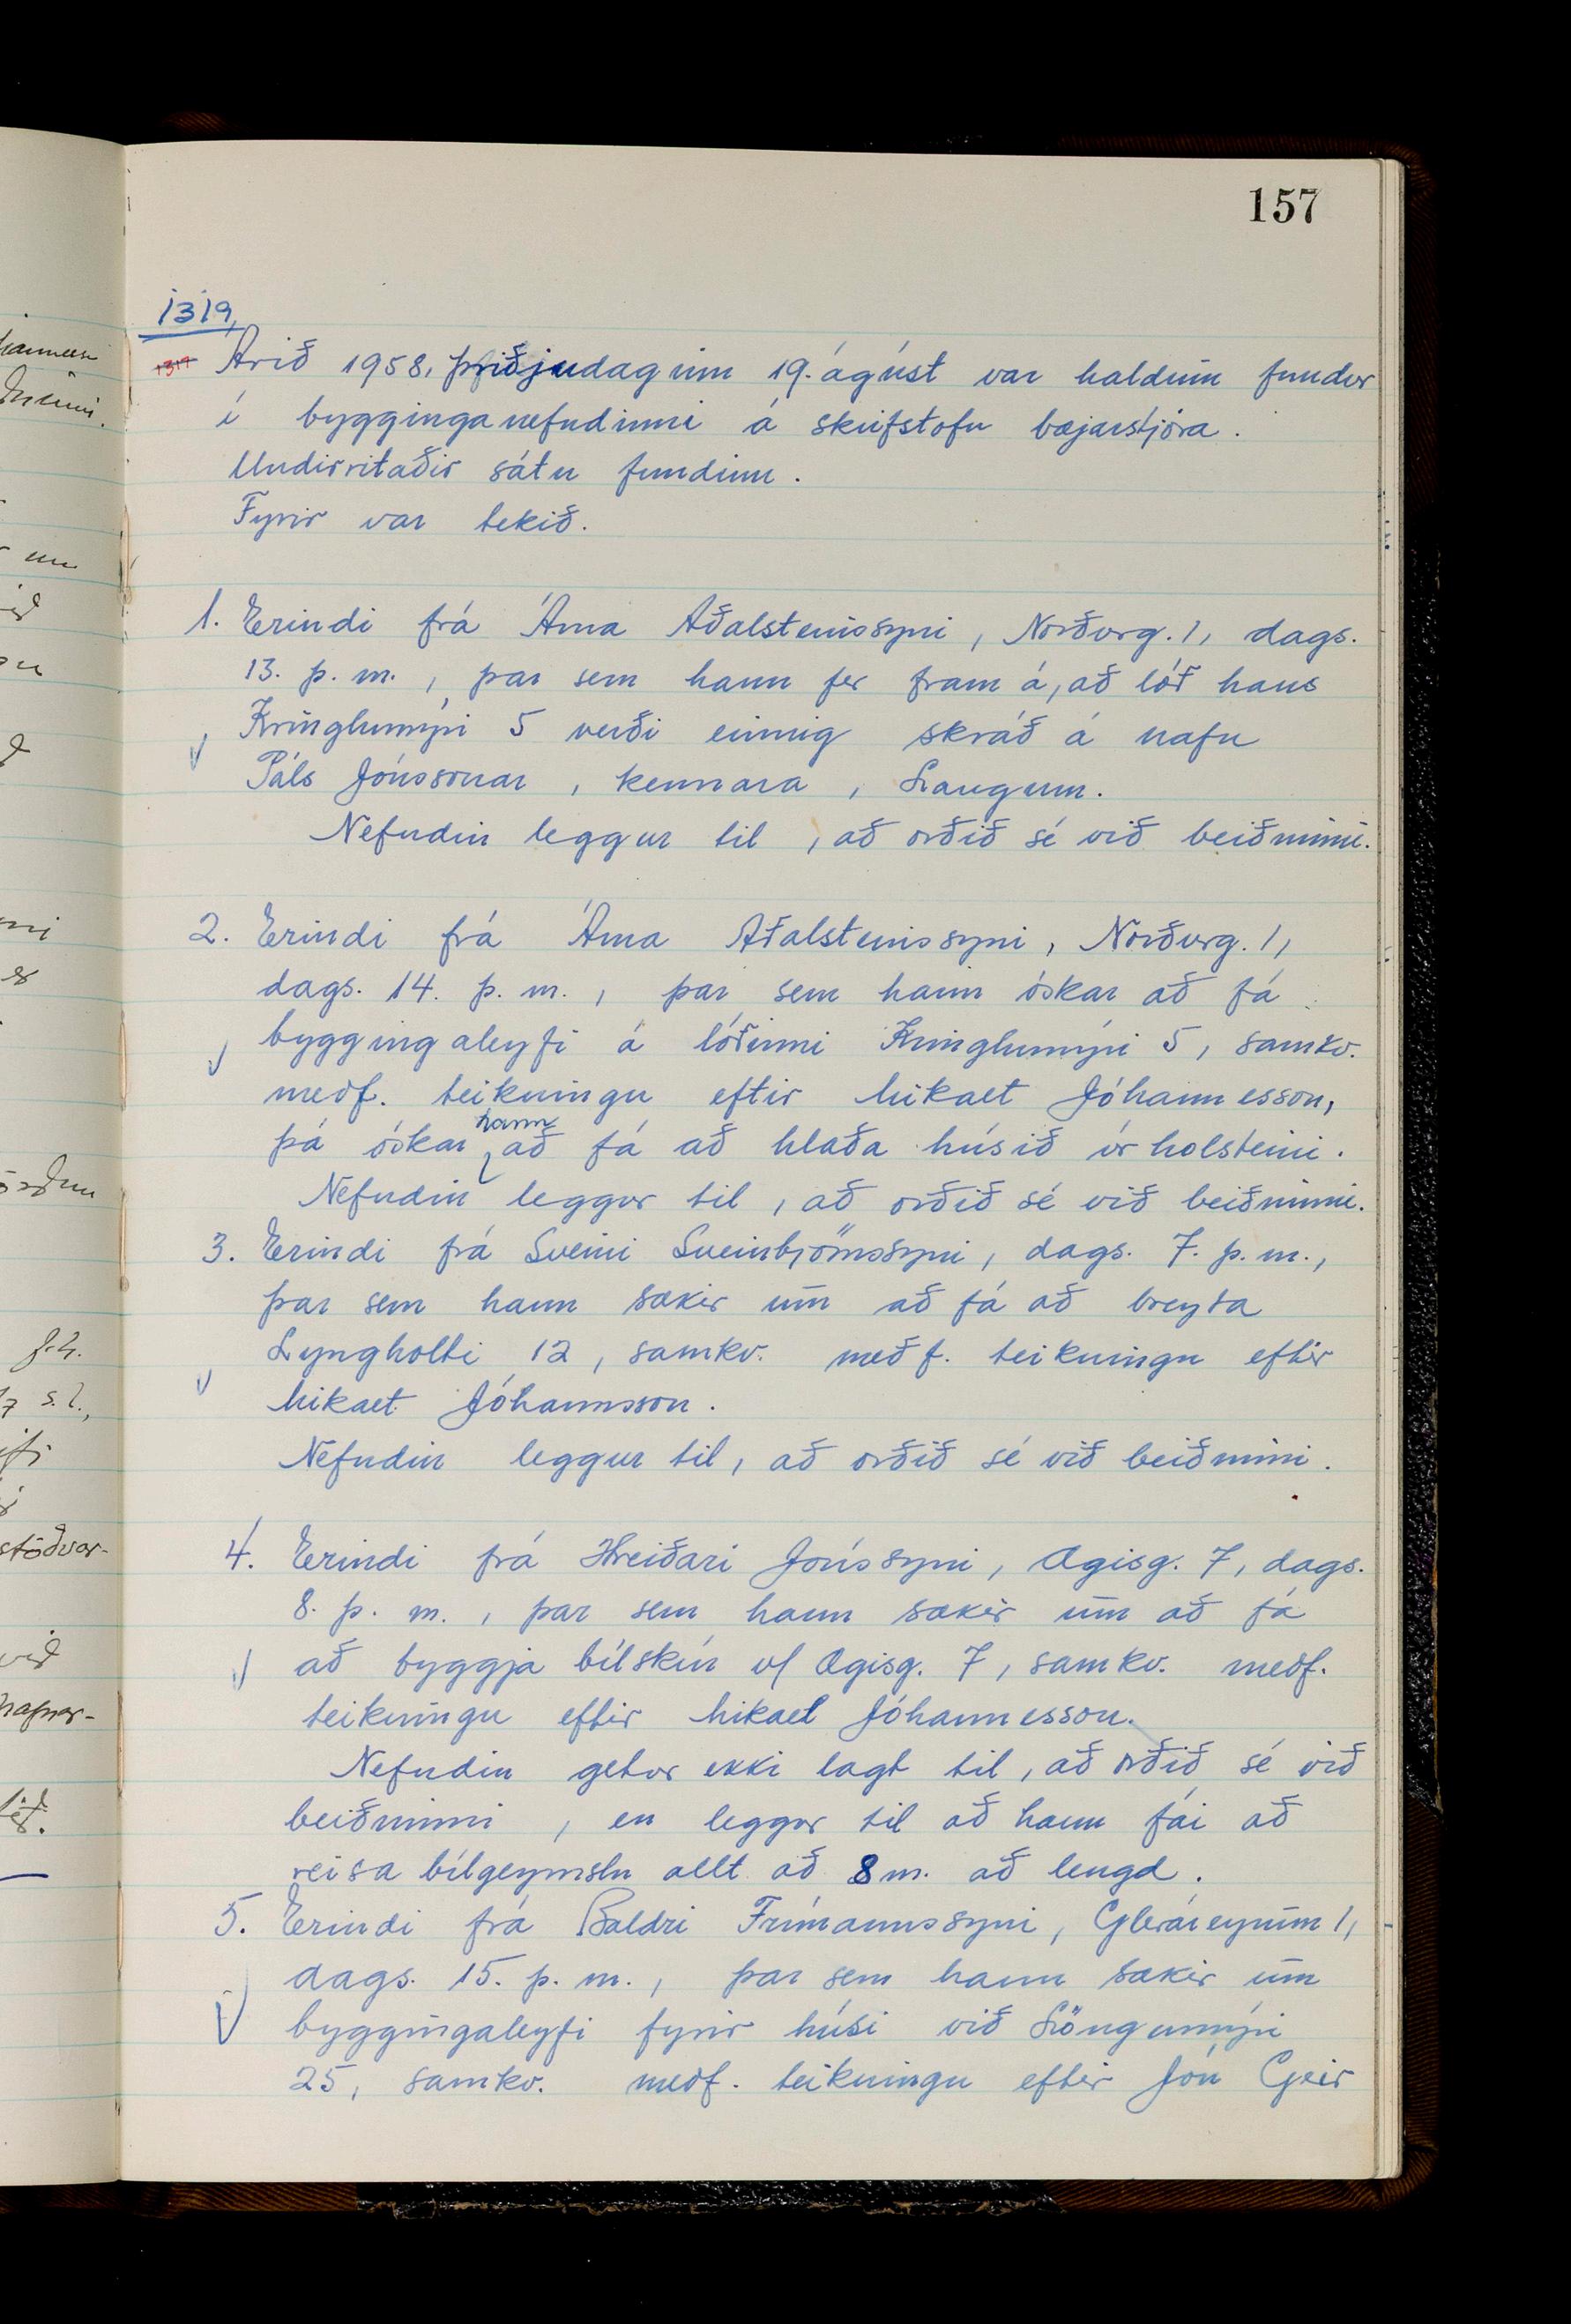 157
1319,
1317 Árið 1958, þriðjudaginn 19. ágúst var haldinn fundur
í bygginganefndinni á skrifstofu bæjarstjóra.
Undirritaðir sátu fundinn.
Fyrir var tekið.
1. Erindi frá Árna Aðalsteinssyni, Norðurg. 1, dags.
13. þ. m., þar sem hann fer fram á, að lóð hans
Kringlumýri 5 verði einnig skráð á nafn
Páls Jónssonar, kennara, Laugum.
Nefndin leggur til, að orðið sé við beiðninni.
2. Erindi frá Árna Aðalsteinssyni, Norðurg. 1,
dags. 14. þ. m., þar sem hann óskar að fá
byggingaleyfi á lóðinni Kringlumýri 5, samkv.
meðf. teikningu eftir Mikael Jóhannesson,
þá óskar hann að fá að hlaða húsið úr holsteini.
Nefndin leggur til, að orðið sé við beiðninni.
3. Erindi frá Sveini Sveinbjörnssyni, dags. 7. þ. m.,
þar sem hann sækir um að fá að breyta
Lyngholti 12, samkv. meðf. teikningu eftir
Mikael Jóhannsson.
Nefndin leggur til, að orðið sé við beiðninni.
4. Erindi frá Hreiðari Jónssyni, Ægisg. 7, dags.
8. þ. m., þar sem hann sækir um að fá
að byggja bílskúr v/ Ægisg. 7, samkv. meðf.
teikningu eftir Mikael Jóhannesson.
Nefndin getur ekki lagt til, að orðið sé við
beiðninni, en leggur til að hann fái að
reisa bílgeymslu allt að 8 m. að lengd.
5. Erindi frá Baldri Frímannssyni, Gleráreyrum 1,
dags. 15. þ. m., þar sem hann sækir um
byggingaleyfi fyrir húsi við Löngumýri
25, samkv. meðf. teikningu eftir Jón Geir